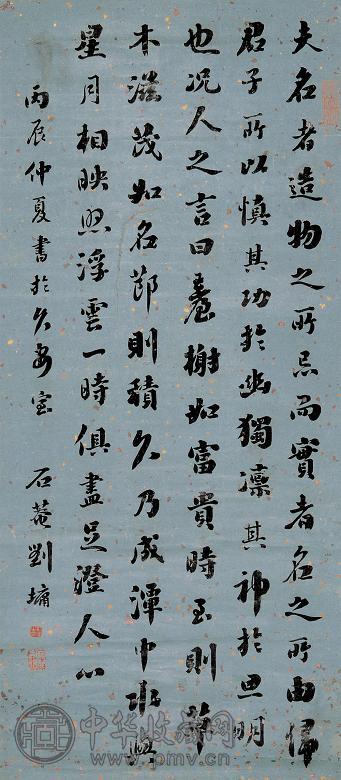 夫名者造物之所忌而實者名之所由歸
君子所以慎其功於幽獨凛其神於思明
也况人之言曰臺榭如富貴時至則華草
木滋茂如名節則積久乃成潭中
星月相映照浮雲一時俱盡足澄人心
丙辰仲夏書於久安室 石菴劉墉
中华收藏网
www.pmv.cn